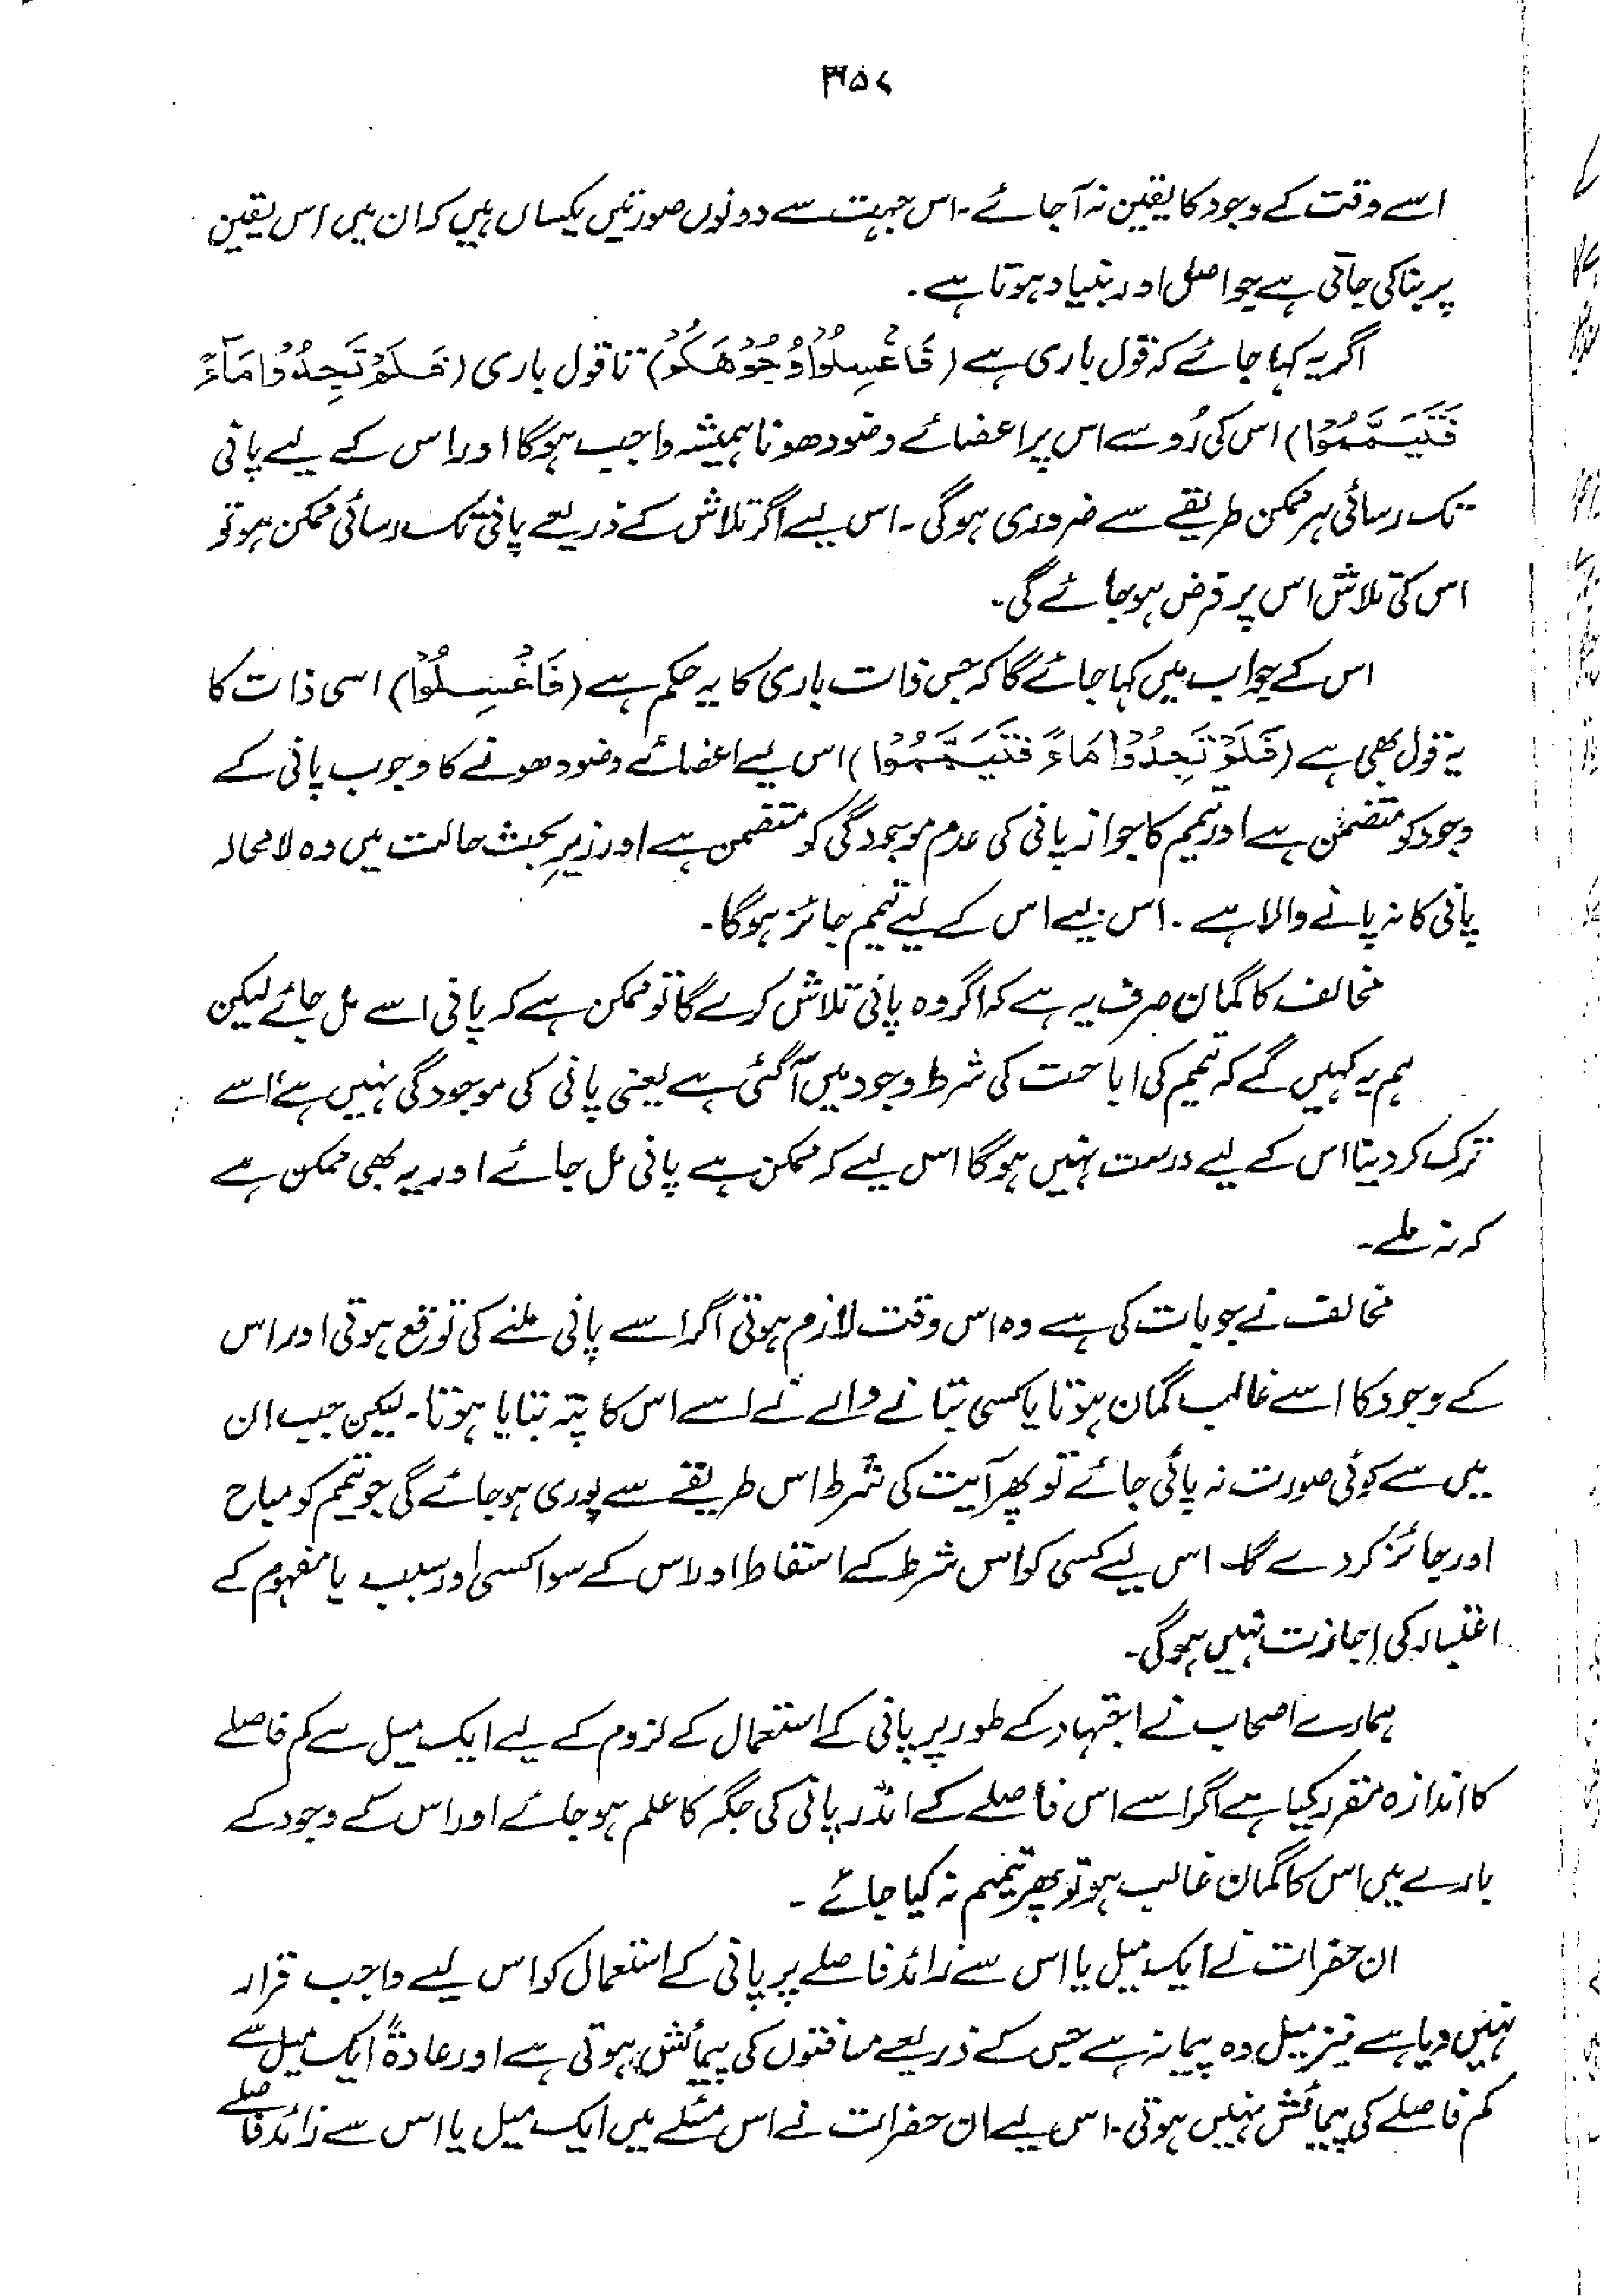 ۳۵۷
اسے وقت کے وجود کا یقین نہ آ جائے۔ اس جہت سے دونوں صورتیں یکساں ہیں کہ ان میں اس یقین
پر بنا کی جاتی ہے جو اصل اور بنیاد ہوتا ہے۔
اگر یہ کہا جائے کہ قول باری ہے (فَاغْسِلُوْا وُجُوْهَكُمْ) تا قول باری (فَلَمْ تَجِدُوْا مَآءً
فَتَيَمَّمُوْا) اس کی رُو سے اس پر اعضائے وضو دھونا ہمیشہ واجب ہوگا اور اس کے لیے پانی
تک رسائی ہر ممکن طریقے سے ضروری ہوگی۔ اس لیے اگر تلاش کے ذریعے پانی تک رسائی ممکن ہو تو
اس کی تلاش اس پر فرض ہو جائے گی۔
اس کے جواب میں کہا جائے گا کہ جس ذات باری کا یہ حکم ہے (فَاغْسِلُوْا) اسی ذات کا
یہ قول بھی ہے (فَلَمْ تَجِدُوْا مَاءً فَتَيَمَّمُوْا) اس لیے اعضائے وضو دھونے کا وجوب پانی کے
وجود کو متضمن ہے اور تیمم کا جواز پانی کی عدم موجودگی کو متضمن ہے اور زیرِ بحث حالت میں وہ لامحالہ
پانی کا نہ پانے والا ہے۔ اس لیے اس کے لیے تیمم جائز ہوگا۔
مخالف کا گمان صرف یہ ہے کہ اگر وہ پانی تلاش کرے گا تو ممکن ہے کہ پانی اسے مل جائے لیکن
ہم یہ کہیں گے کہ تیمم کی اباحت کی شرط وجود میں آگئی ہے یعنی پانی کی موجودگی نہیں ہے، اسے
ترک کر دینا اس کے لیے درست نہیں ہوگا اس لیے کہ ممکن ہے پانی مل جائے اور یہ بھی ممکن ہے
کہ نہ ملے۔
مخالف نے جو بات کی ہے وہ اس وقت لازم ہوتی اگر اسے پانی ملنے کی توقع ہوتی اور اس
کے وجود کا اسے غالب گمان ہوتا یا کسی بتانے والے نے اسے اس کا پتہ بتایا ہوتا۔ لیکن جب ان
میں سے کوئی صورت نہ پائی جائے تو پھر آیت کی شرط اس طریقے سے پوری ہو جائے گی جو تیمم کو مباح
اور جائز کر دے گا۔ اس لیے کسی کو اس شرط کے اسقاط اور اس کے سوا کسی اور سبب یا مفہوم کے
اعتبار کی اجازت نہیں ہوگی۔
ہمارے اصحاب نے اجتہاد کے طور پر پانی کے استعمال کے لزوم کے لیے ایک میل سے کم فاصلے
کا اندازہ مقرر کیا ہے اگر اسے اس فاصلے کے اندر پانی کی جگہ کا علم ہو جائے اور اس کے وجود کے
بارے میں اس کا گمان غالب ہو تو پھر تیمم نہ کیا جائے۔
ان حضرات نے ایک میل یا اس سے زائد فاصلے پر پانی کے استعمال کو اس لیے واجب قرار
نہیں دیا ہے نیز میل وہ پیمانہ ہے جس کے ذریعے مسافتوں کی پیمائش ہوتی ہے اور عادۃً ایک میل سے
کم فاصلے کی پیمائش نہیں ہوتی۔ اس لیے ان حضرات نے اس مسئلے میں ایک میل یا اس سے زائد فاصلے